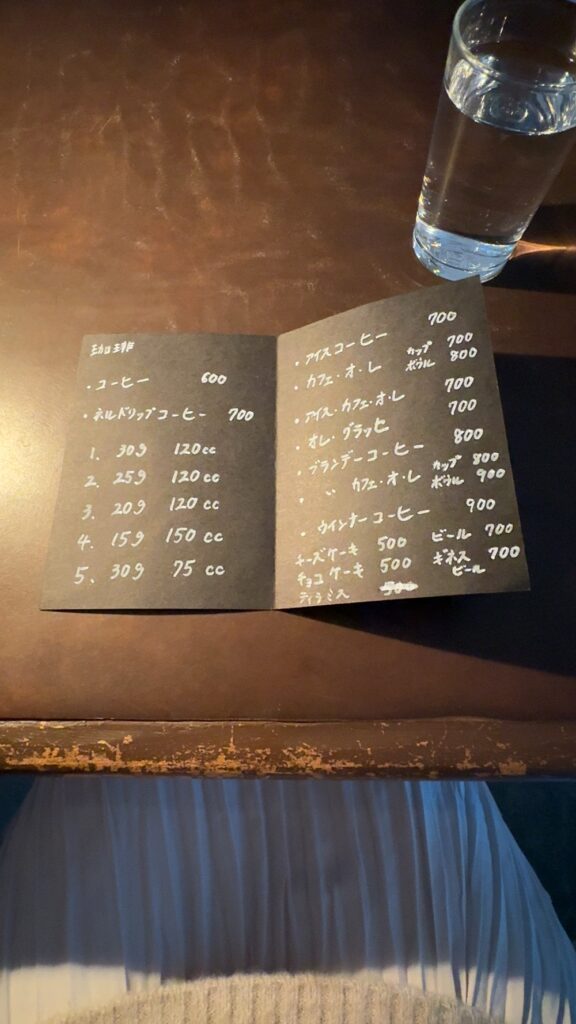 珈琲
・コーヒー 600
・ネルドリップコーヒー 700
1. 30g 120cc
2. 25g 120cc
3. 20g 120cc
4. 15g 150cc
5. 30g 75cc
・アイスコーヒー 700
・カフェ・オ・レ カップ 700
ボウル 800
・アイス・カフェ・オ・レ 700
・オレ・グラッセ 700
・ブランデーコーヒー 800
・〃 カフェ・オ・レ カップ 800
ボウル 900
・ウインナーコーヒー 900
チーズケーキ 500 ビール 700
チョコケーキ 500 ギネスビール 700
ティラミス